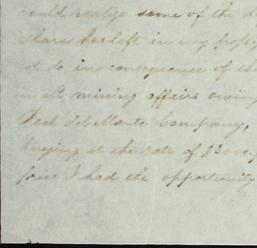 could realize some of the
shares he left in my
not do in consequence of the
in all mining affairs owing
Real del Monte Company,
buying at the rate of
I had the opportunity